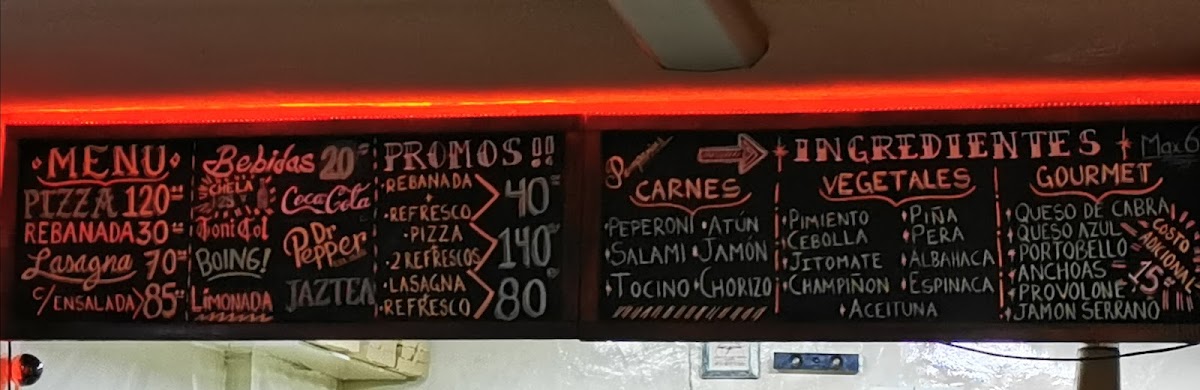 MENU
PIZZA 120
REBANADA 30
Lasagna 70
C/ ENSALADA 85
Bebidas 20
CHELA
Coca Cola
Toni Col
Dr Pepper
BOING!
LIMONADA
JAZTEA
PROMOS!!
•REBANADA
+
•REFRESCO
40
•PIZZA
•2 REFRESCOS
140
•LASAGNA
•REFRESCO
80
INGREDIENTES
Max 6
CARNES
•PEPERONI •ATÚN
•SALAMI •JAMÓN
•TOCINO •CHORIZO
VEGETALES
•PIMIENTO •PIÑA
•CEBOLLA •PERA
•JITOMATE •ALBAHACA
•CHAMPIÑON •ESPINACA
•ACEITUNA
GOURMET
•QUESO DE CABRA
•QUESO AZUL
•PORTOBELLO
•ANCHOAS
•PROVOLONE
•JAMON SERRANO
COSTO
ADICIONAL
15